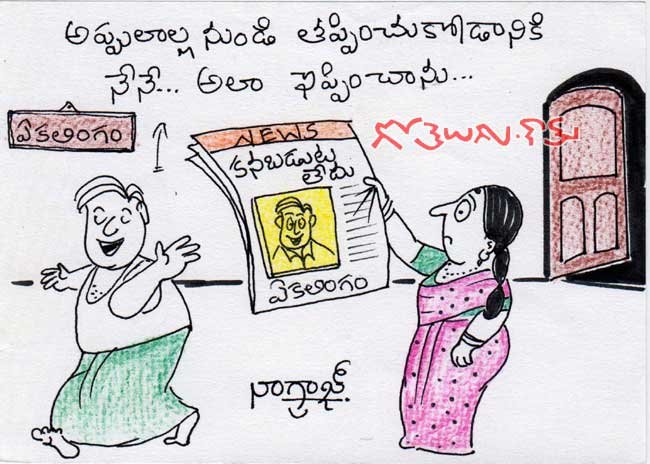 అప్పులాల్ల నుండి తప్పించుకోడానికి
నేనే... అలా ఇప్పించాను...
ఏకలింగం
NEWS
గోతెలుగు.కామ్
కనబడుట
లేదు
ఏకలింగం
నాగ్రాజ్.